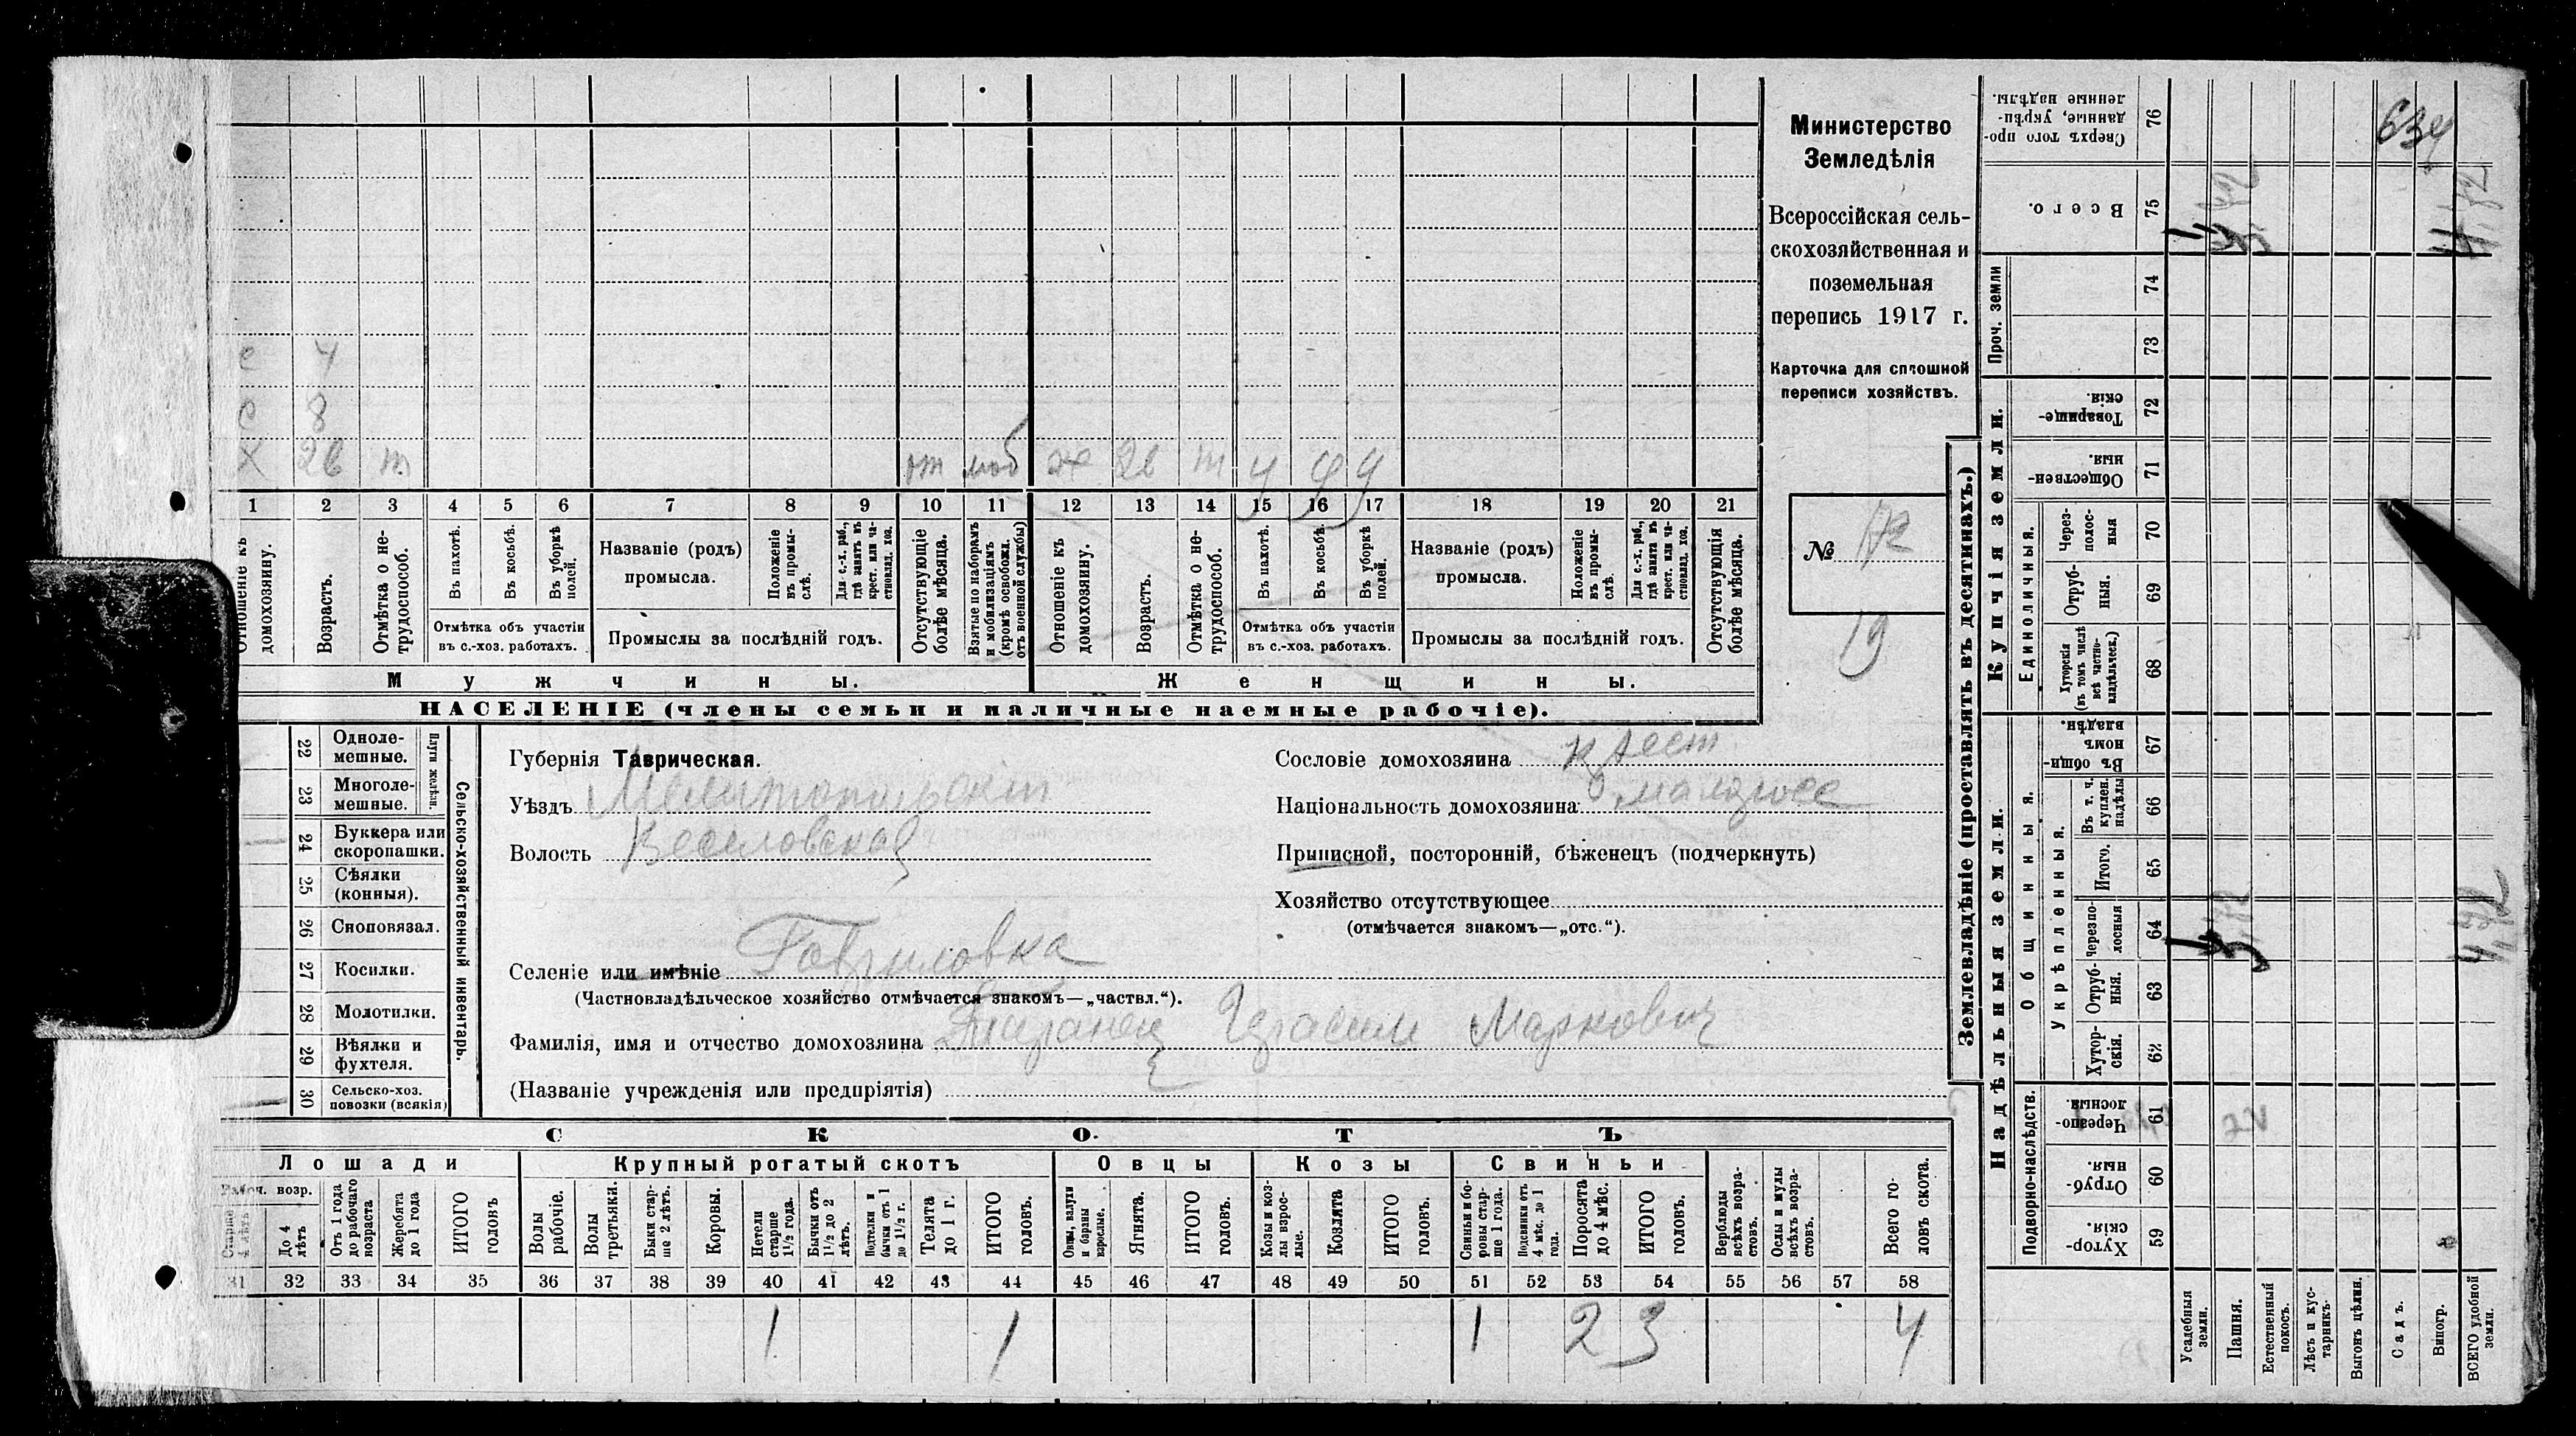 Министерство
Земледѣлія
Всероссійская сель-
скохозяйственная и
поземельная
перепись 1917 г.
Карточка для сплошной
переписи хозяйствъ.
№ 172
19
с 4
с 8
х 26 т от моб ж 26 т ч ч ч
1 2 3 4 5 6 7 8 9 10 11 12 13 14 15 16 17 18 19 20 21
Отношеніе къ домохозяину.
Возрастъ.
Отмѣтка о не-трудоспособ.
Въ пахотѣ.
Въ косьбѣ.
Въ уборкѣ полей.
Отмѣтка объ участіи въ с.-хоз. работахъ.
Названіе (родъ) промысла.
Положеніе въ промы-слѣ.
Для с.-х. раб., гдѣ занятъ въ крест. или ча-стновлад. хоз.
Промыслы за послѣдній годъ.
Отсутствующіе болѣе мѣсяца.
Взятые по наборамъ и мобилизаціямъ (кромѣ освобожд. отъ военной службы)
Отношеніе къ домохозяину.
Возрастъ.
Отмѣтка о не-трудоспособ.
Въ пахотѣ.
Въ косьбѣ.
Въ уборкѣ полей.
Отмѣтка объ участіи въ с.-хоз. работахъ.
Названіе (родъ) промысла.
Положеніе въ промы-слѣ.
Для с.-х. раб., гдѣ занятъ въ крест. или ча-стновлад. хоз.
Промыслы за послѣдній годъ.
Отсутствующія болѣе мѣсяца.
Мужчины. Женщины.
НАСЕЛЕНІЕ (члены семьи и наличные наемные рабочіе).
22 Одноле-мешные.
23 Многоле-мешные.
Плуги желѣзн.
24 Буккера или скоропашки.
25 Сѣялки (конныя).
26 Сноповязал.
27 Косилки.
28 Молотилки.
29 Вѣялки и фухтеля.
30 Сельско-хоз. повозки (всякія)
Сельско-хозяйственный инвентарь.
Губернія Таврическая.
Уѣздъ Мелитопольскій
Волость Веселовская
Селеніе или имѣніе Гавриловка
(Частновладѣльческое хозяйство отмѣчается знакомъ—„частвл.“).
Фамилія, имя и отчество домохозяина Таранец Герасим Маркович
(Названіе учрежденія или предпріятія)
Сословіе домохозяина крест
Національность домохозяина малорос
Приписной, посторонній, бѣженецъ (подчеркнуть)
Хозяйство отсутствующее
(отмѣчается знакомъ—„отс.“).
СКОТЪ
Лошади Крупный рогатый скотъ Овцы Козы Свиньи
Рабоч. возр.
Старше 4 лѣтъ
До 4 лѣтъ
Отъ 1 года до рабочаго возраста
Жеребята до 1 года
ИТОГО головъ
Волы рабочіе.
Волы третьяки.
Быки стар-ше 2 лѣтъ.
Коровы.
Нетели старше 1½ года.
Бычки отъ 1½ до 2 лѣтъ.
Подтелки и бычки отъ 1 до 1½ г.
Телята до 1 г.
ИТОГО головъ.
Овцы, валухи и бараны взрослые.
Ягнята.
ИТОГО головъ.
Козы и коз-лы взрос-лые.
Козлята
ИТОГО головъ.
Свиньи и бо-ровы стар-ше 1 года.
Подсвинки отъ 4 мѣс. до 1 года.
Поросята до 4 мѣс.
ИТОГО головъ.
Верблюды всѣхъ возра-стовъ.
Ослы и мулы всѣхъ возра-стовъ.
Всего го-ловъ скота.
31 32 33 34 35 36 37 38 39 40 41 42 43 44 45 46 47 48 49 50 51 52 53 54 55 56 57 58
1 1 1 2 3 4
Землевладѣніе (проставлять въ десятинахъ.)
Сверхъ того про-данные, укрѣп-ленные надѣлы. 76
634
Всего. 75
Проч. земли 74 73
Купчія земли.
Товарище-скія. 72
Обществен-ныя. 71
Единоличныя.
Через-полос-ныя 70
Отруб-ныя. 69
Хуторскія (въ томъ числѣ всѣ частно-владѣльческ.) 68
Надѣльныя земли.
Общинныя.
Въ общин-номъ владѣн. 67
Укрѣпленныя.
Въ т. ч. куплен. надѣлы 66
Итого. 65
Черезпо-лосныя 64
Отруб-ныя. 63
Хутор-скія. 62
Подворно-наслѣдств.
Черезпо-лосныя. 61
Отруб-ныя. 60
Хутор-скія. 59
Усадебныя земли.
Пашня.
Естественный покосъ.
Лѣсъ и кус-тарникъ.
Выгонъ цѣлин.
Садъ.
Виногр.
ВСЕГО удобной земли.